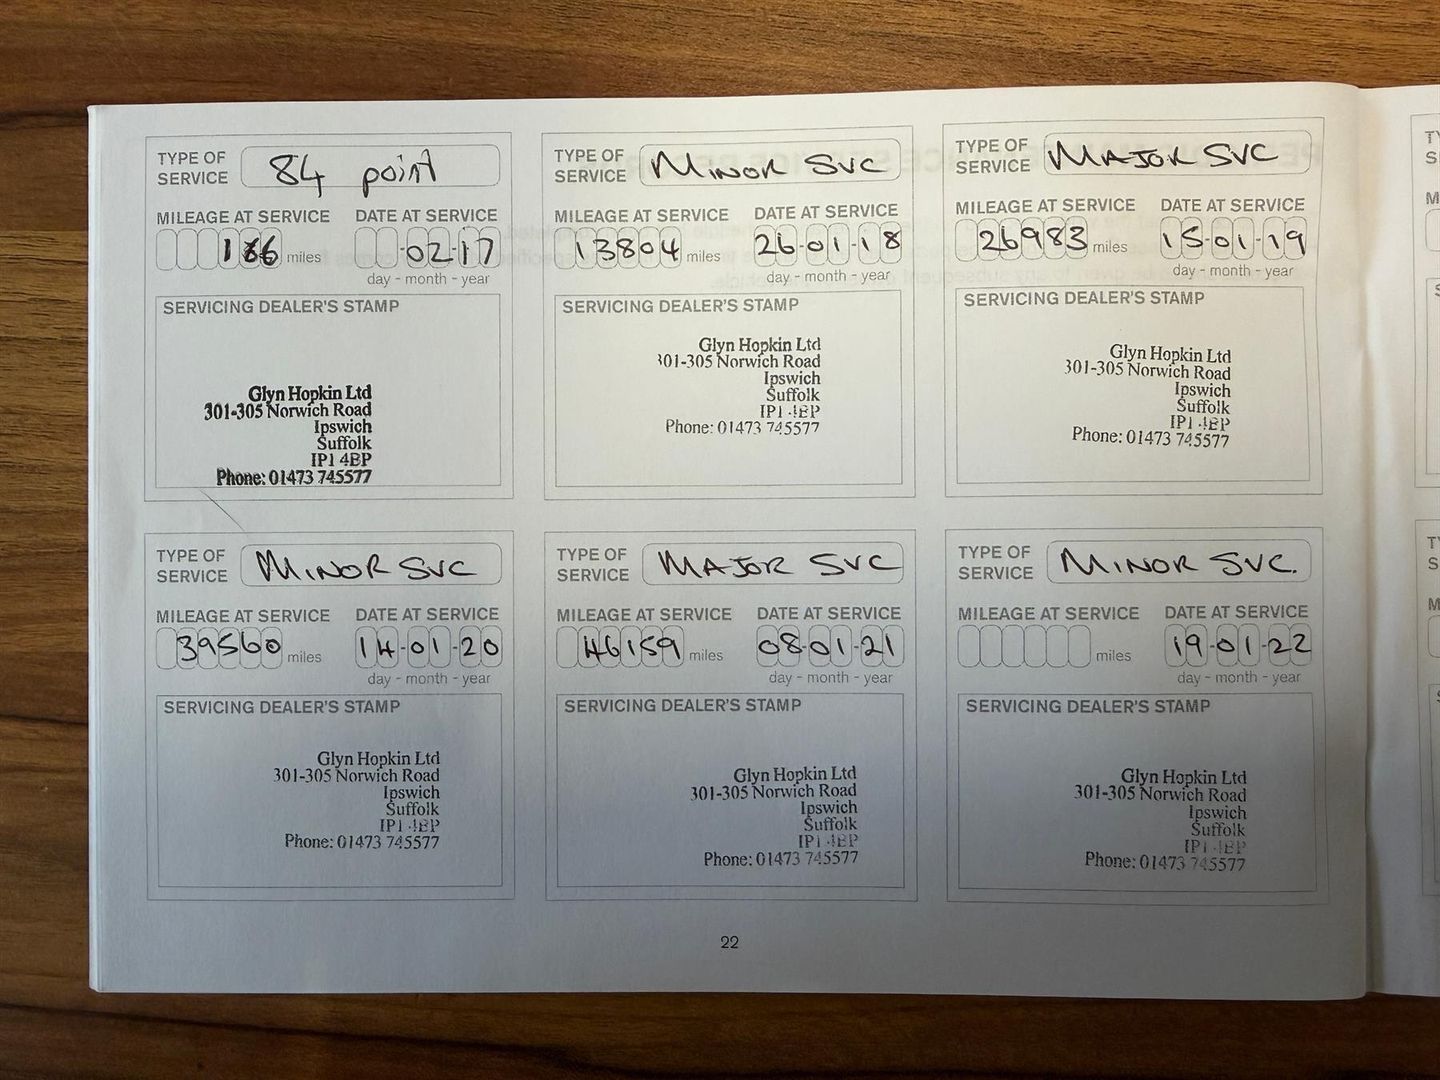 TYPE OF SERVICE 84 point
MILEAGE AT SERVICE DATE AT SERVICE
miles -02-17
day - month - year
SERVICING DEALER'S STAMP
Glyn Hopkin Ltd
301-305 Norwich Road
Ipswich
Suffolk
IP1 4BP
Phone: 01473 745577
TYPE OF SERVICE MINOR SVC
MILEAGE AT SERVICE DATE AT SERVICE
13804 miles 26-01-18
day - month - year
SERVICING DEALER'S STAMP
Glyn Hopkin Ltd
301-305 Norwich Road
Ipswich
Suffolk
IP1 4BP
Phone: 01473 745577
TYPE OF SERVICE MAJOR SVC
MILEAGE AT SERVICE DATE AT SERVICE
26983 miles 15-01-19
day - month - year
SERVICING DEALER'S STAMP
Glyn Hopkin Ltd
301-305 Norwich Road
Ipswich
Suffolk
IP1 4BP
Phone: 01473 745577
TYPE OF SERVICE MINOR SVC
MILEAGE AT SERVICE DATE AT SERVICE
39560 miles 14-01-20
day - month - year
SERVICING DEALER'S STAMP
Glyn Hopkin Ltd
301-305 Norwich Road
Ipswich
Suffolk
IP1 4BP
Phone: 01473 745577
TYPE OF SERVICE MAJOR SVC
MILEAGE AT SERVICE DATE AT SERVICE
46159 miles 08-01-21
day - month - year
SERVICING DEALER'S STAMP
Glyn Hopkin Ltd
301-305 Norwich Road
Ipswich
Suffolk
IP1 4BP
Phone: 01473 745577
TYPE OF SERVICE MINOR SVC.
MILEAGE AT SERVICE DATE AT SERVICE
miles 19-01-22
day - month - year
SERVICING DEALER'S STAMP
Glyn Hopkin Ltd
301-305 Norwich Road
Ipswich
Suffolk
IP1 4BP
Phone: 01473 745577
22